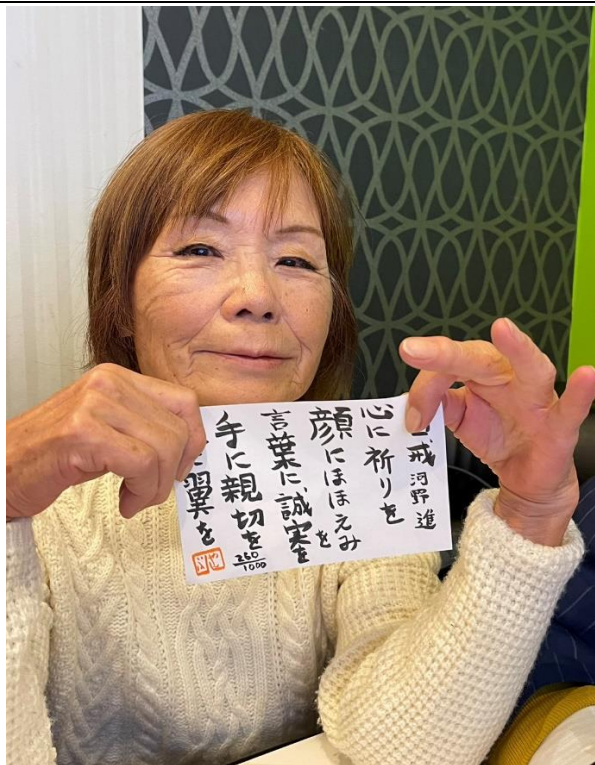 戒 河野進
心に祈りを
顔にほほえみを
言葉に、誠実を
手に親切を
翼を
250/1000